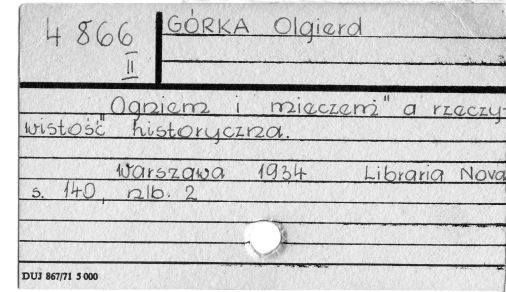 4 866
II
GÓRKA Olgierd
Ogniem i mieczem" a rzeczy-
wistość historyczna.
Warszawa 1934 Libraria Nova
s. 140, nlb. 2
DUJ 867/71 5 000